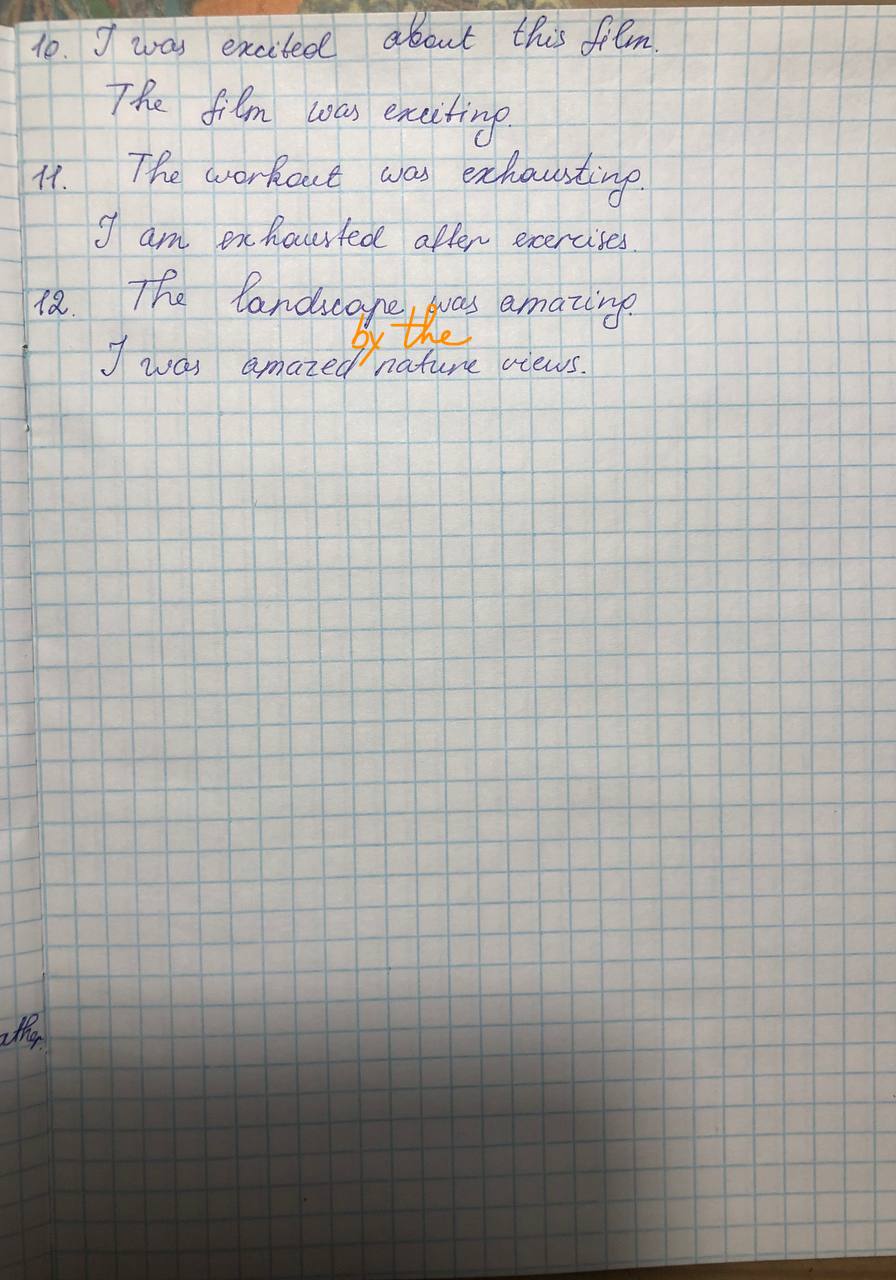 10. I was excited about this film.
The film was exciting.
11. The workout was exhausting.
I am exhausted after exercises.
12. The landscape was amazing.
by the
I was amazed nature views.